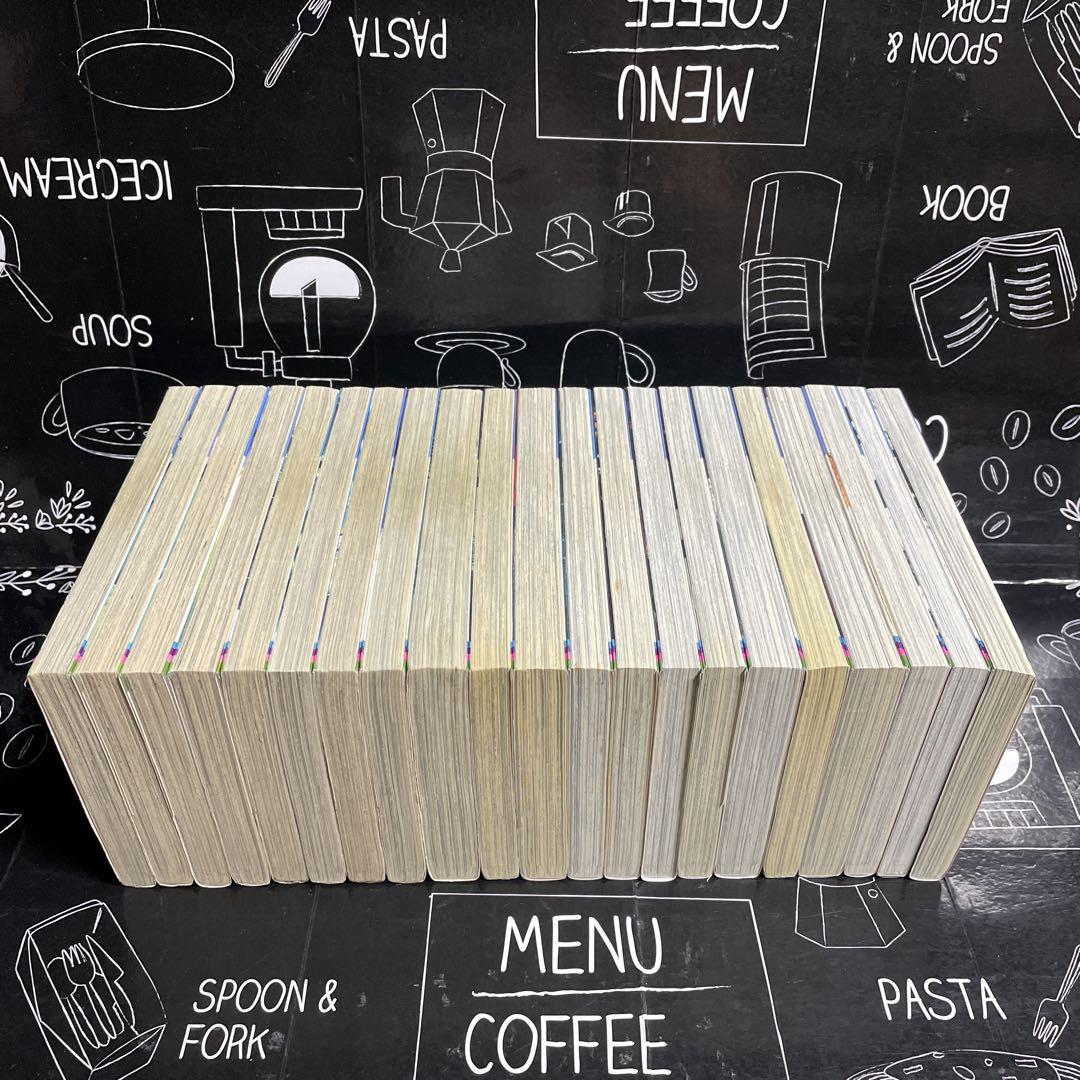 PASTA
COFFEE
MENU
SPOON &
FORK
ICECREAM
BOOK
SOUP
MENU
COFFEE
SPOON &
FORK
PASTA